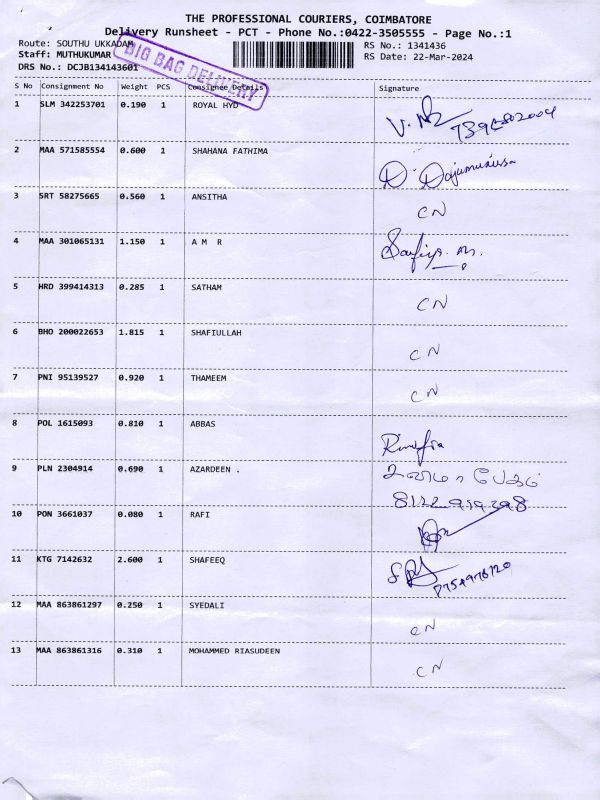 THE PROFESSIONAL COURIERS, COIMBATORE
Delivery Runsheet - PCT - Phone No.:0422-3505555 - Page No.:1
Route: SOUTHU UKKADAM
RS No.: 1341436
Staff: MUTHUKUMAR
RS Date: 22-Mar-2024
DRS No.: DCJB134143601
BIG BAG DELIVERY
S No Consignment No Weight PCS Consignee Details Signature
1 SLM 342253701 0.190 1 ROYAL HYD
2 MAA 571585554 0.600 1 SHAHANA FATHIMA
3 SRT 58275665 0.560 1 ANSITHA CN
4 MAA 301065131 1.150 1 A M R Safiya. M.
5 HRD 399414313 0.285 1 SATHAM CN
6 BHO 200022653 1.815 1 SHAFIULLAH CN
7 PNI 95139527 0.920 1 THAMEEM CN
8 POL 1615093 0.810 1 ABBAS
9 PLN 2304914 0.690 1 AZARDEEN .
10 PON 3661037 0.080 1 RAFI
11 KTG 7142632 2.600 1 SHAFEEQ
12 MAA 863861297 0.250 1 SYEDALI CN
13 MAA 863861316 0.310 1 MOHAMMED RIASUDEEN CN